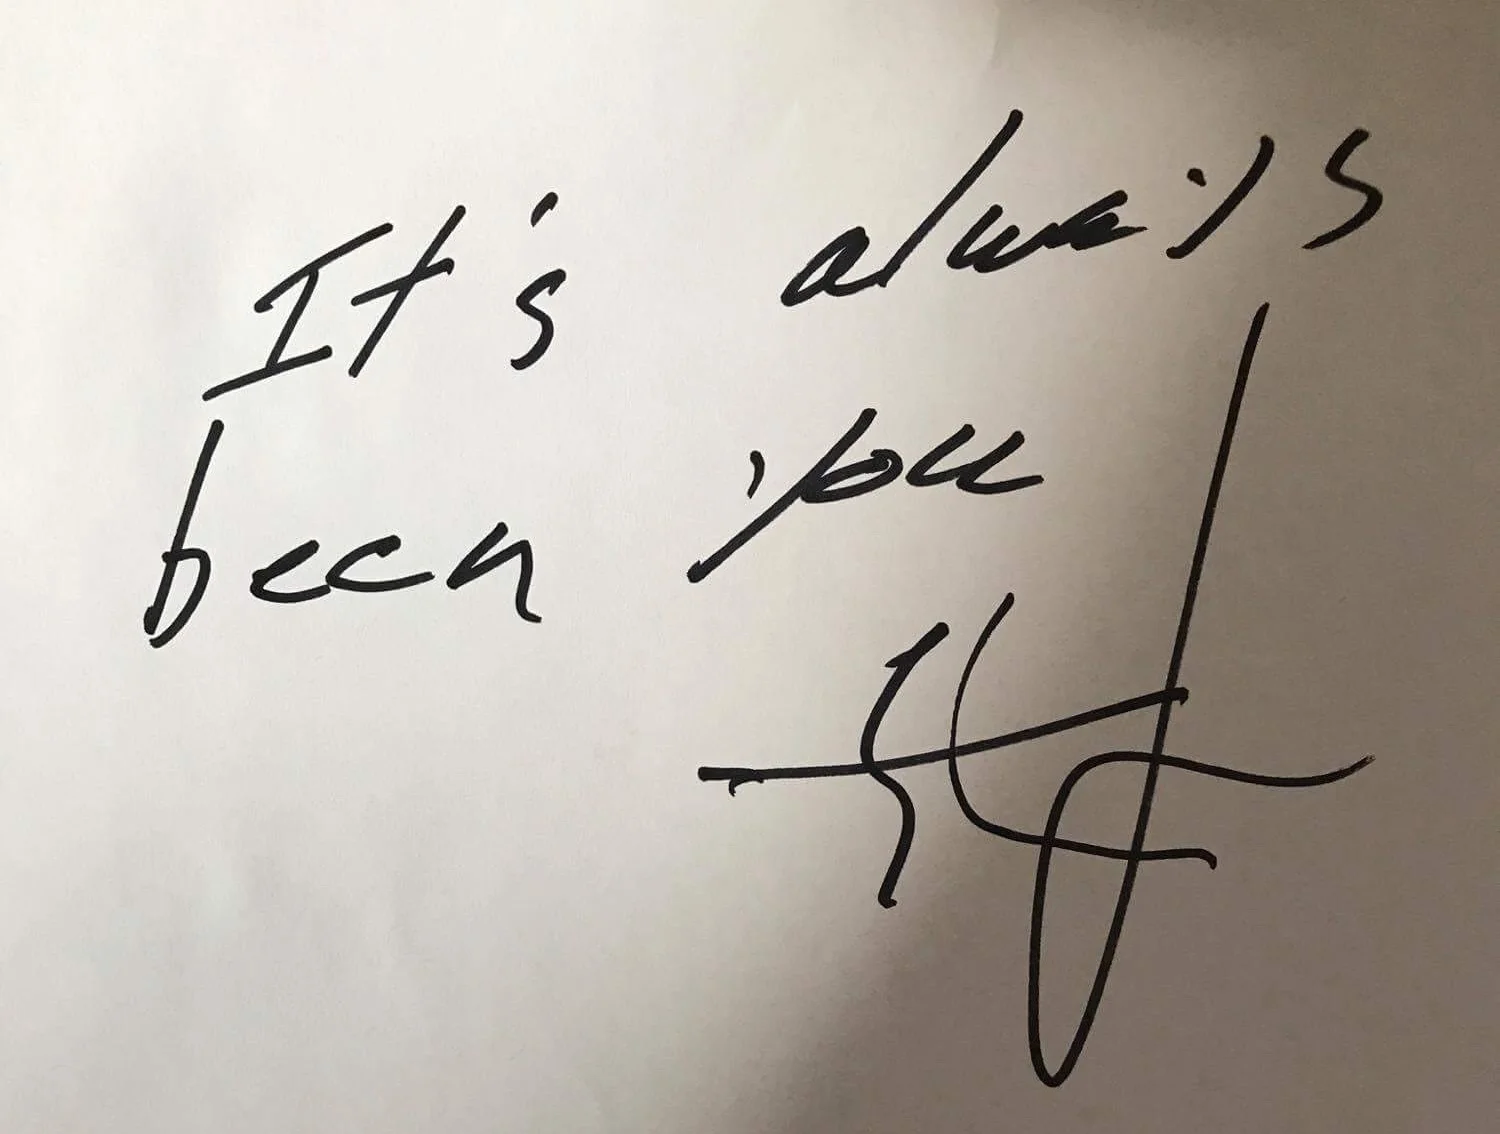 It's always
been you